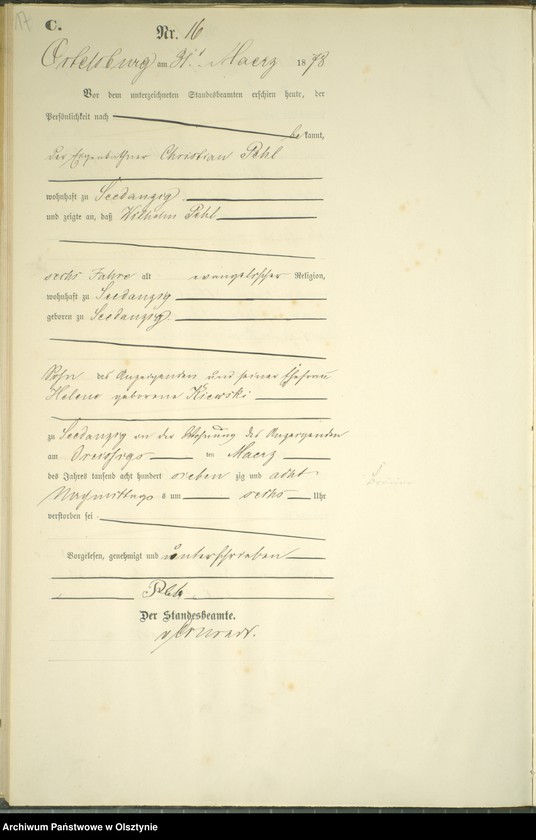 C.
Nr. 16
Ortelsburg am 31t Maerz 1878
Vor dem unterzeichneten Standesbeamten erschien heute, der
Persönlichkeit nach
be kannt,
der Eigenkäthner Christian
wohnhaft zu Seedanzig
und zeigte an, daß Wilhelm
sechs Jahre alt evangelischer Religion,
wohnhaft zu Seedanzig
geboren zu Seedanzig
Sohn des Anzeigenden und seiner Ehefrau
Helene geborene Kiewski
zu Seedanzig in der Wohnung des Anzeigenden
am ten Maerz
des Jahres tausend acht hundert sieben zig und acht
Nachmittags um sechs Uhr
verstorben sei
Vorgelesen, genehmigt und unterschrieben
Der Standesbeamte.
Archiwum Państwowe w Olsztynie